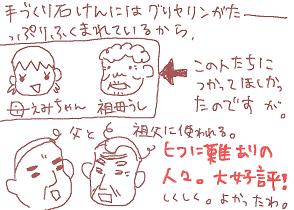 手づくり石けんにはグリセリンがたーーーー
っぷりふくまれているから、
この人たちに
つかってほしかっ
たのですが。
母えみちゃん 祖母うし
父と 祖父に使われる。
ヒフに難ありの
人々。大好評!
くしくし。よかったわ。